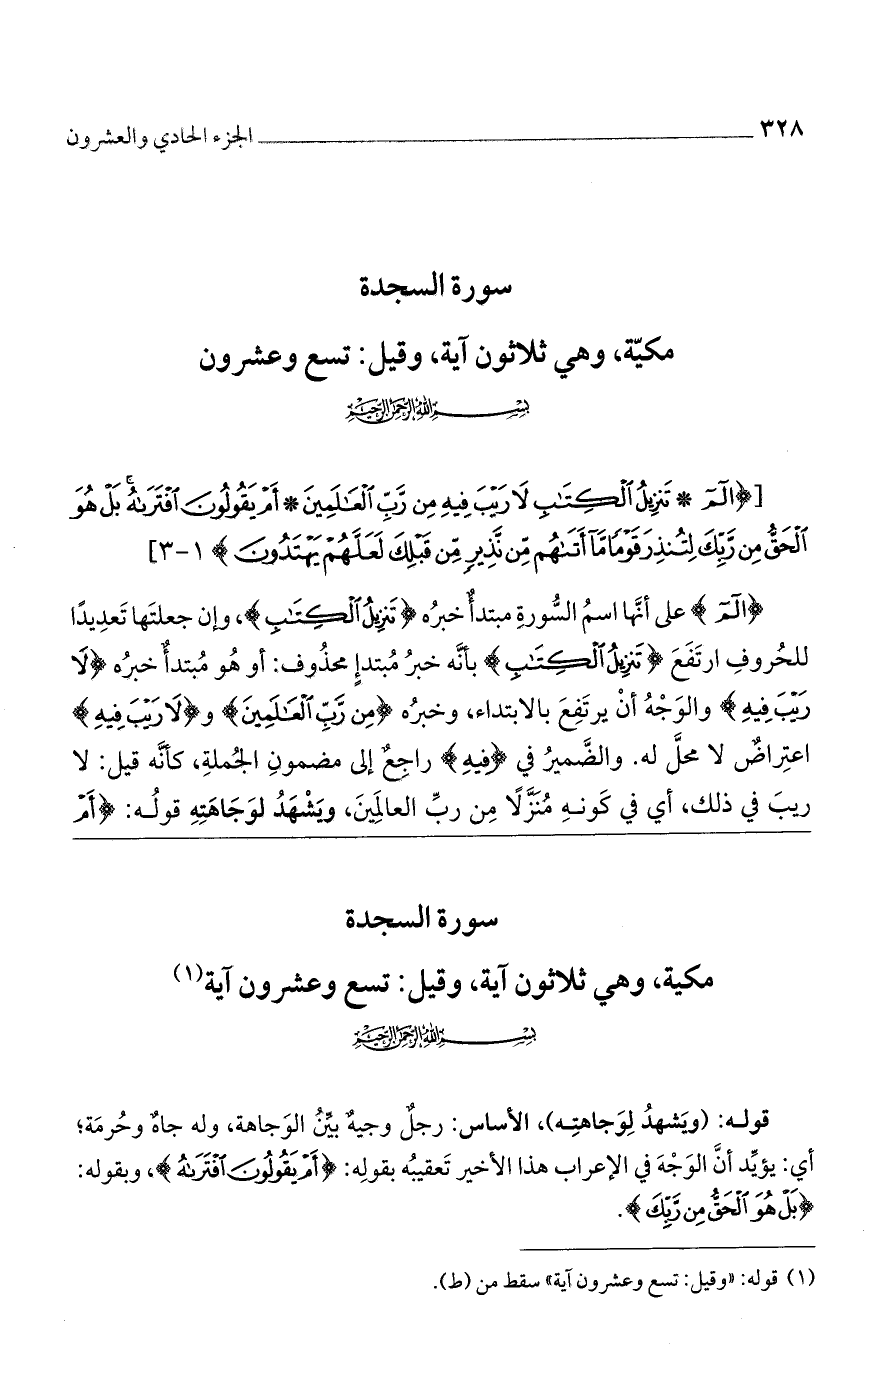 ٣٢٨ الجزء الحادي والعشرون
سورة السجدة
مكيّة، وهي ثلاثون آية، وقيل: تسع وعشرون
بِسْمِ اللهِ الرَّحْمَنِ الرَّحِيمِ
[﴿الٓمٓ * تَنزِيلُ ٱلْكِتَٰبِ لَا رَيْبَ فِيهِ مِن رَّبِّ ٱلْعَٰلَمِينَ * أَمْ يَقُولُونَ ٱفْتَرَىٰهُ ۚ بَلْ هُوَ
ٱلْحَقُّ مِن رَّبِّكَ لِتُنذِرَ قَوْمًا مَّآ أَتَىٰهُم مِّن نَّذِيرٍ مِّن قَبْلِكَ لَعَلَّهُمْ يَهْتَدُونَ﴾ ١-٣]
﴿الٓمٓ﴾ على أنَّها اسمُ السُّورةِ مبتدأٌ خبرُه ﴿تَنزِيلُ ٱلْكِتَٰبِ﴾، وإن جعلتَها تَعدِيدًا
للحُروفِ ارتَفَعَ ﴿تَنزِيلُ ٱلْكِتَٰبِ﴾ بأنَّه خبرُ مُبتدإٍ محذُوف: أو هُو مُبتدأٌ خبرُه ﴿لَا
رَيْبَ فِيهِ﴾ والوَجْهُ أنْ يرتَفِعَ بالابتداء، وخبرُه ﴿مِن رَّبِّ ٱلْعَٰلَمِينَ﴾ و﴿لَا رَيْبَ فِيهِ﴾
اعتِراضٌ لا محلَّ له. والضَّميرُ في ﴿فِيهِ﴾ راجِعٌ إلى مضمونِ الجُملةِ، كأنَّه قيل: لا
ريبَ في ذلك، أي في كَونـهِ مُنَزَّلًا مِن ربِّ العالَمِينَ، ويَشْهَدُ لوَجَاهَتِهِ قولُـه: ﴿أَمْ
سورة السجدة
مكية، وهي ثلاثون آية، وقيل: تسع وعشرون آية(١)
بِسْمِ اللهِ الرَّحْمَنِ الرَّحِيمِ
قولـه: (ويَشهدُ لِوَجاهتِـه)، الأساس: رجلٌ وجيهٌ بيِّنُ الوَجاهة، وله جاهٌ وحُرمَة؛
أي: يؤيِّد أنَّ الوَجْهَ في الإعراب هذا الأخير تَعقيبُه بقولِه: ﴿أَمْ يَقُولُونَ ٱفْتَرَىٰهُ﴾، وبقوله:
﴿بَلْ هُوَ ٱلْحَقُّ مِن رَّبِّكَ﴾.
(١) قوله: «وقيل: تسع وعشرون آية» سقط من (ط).